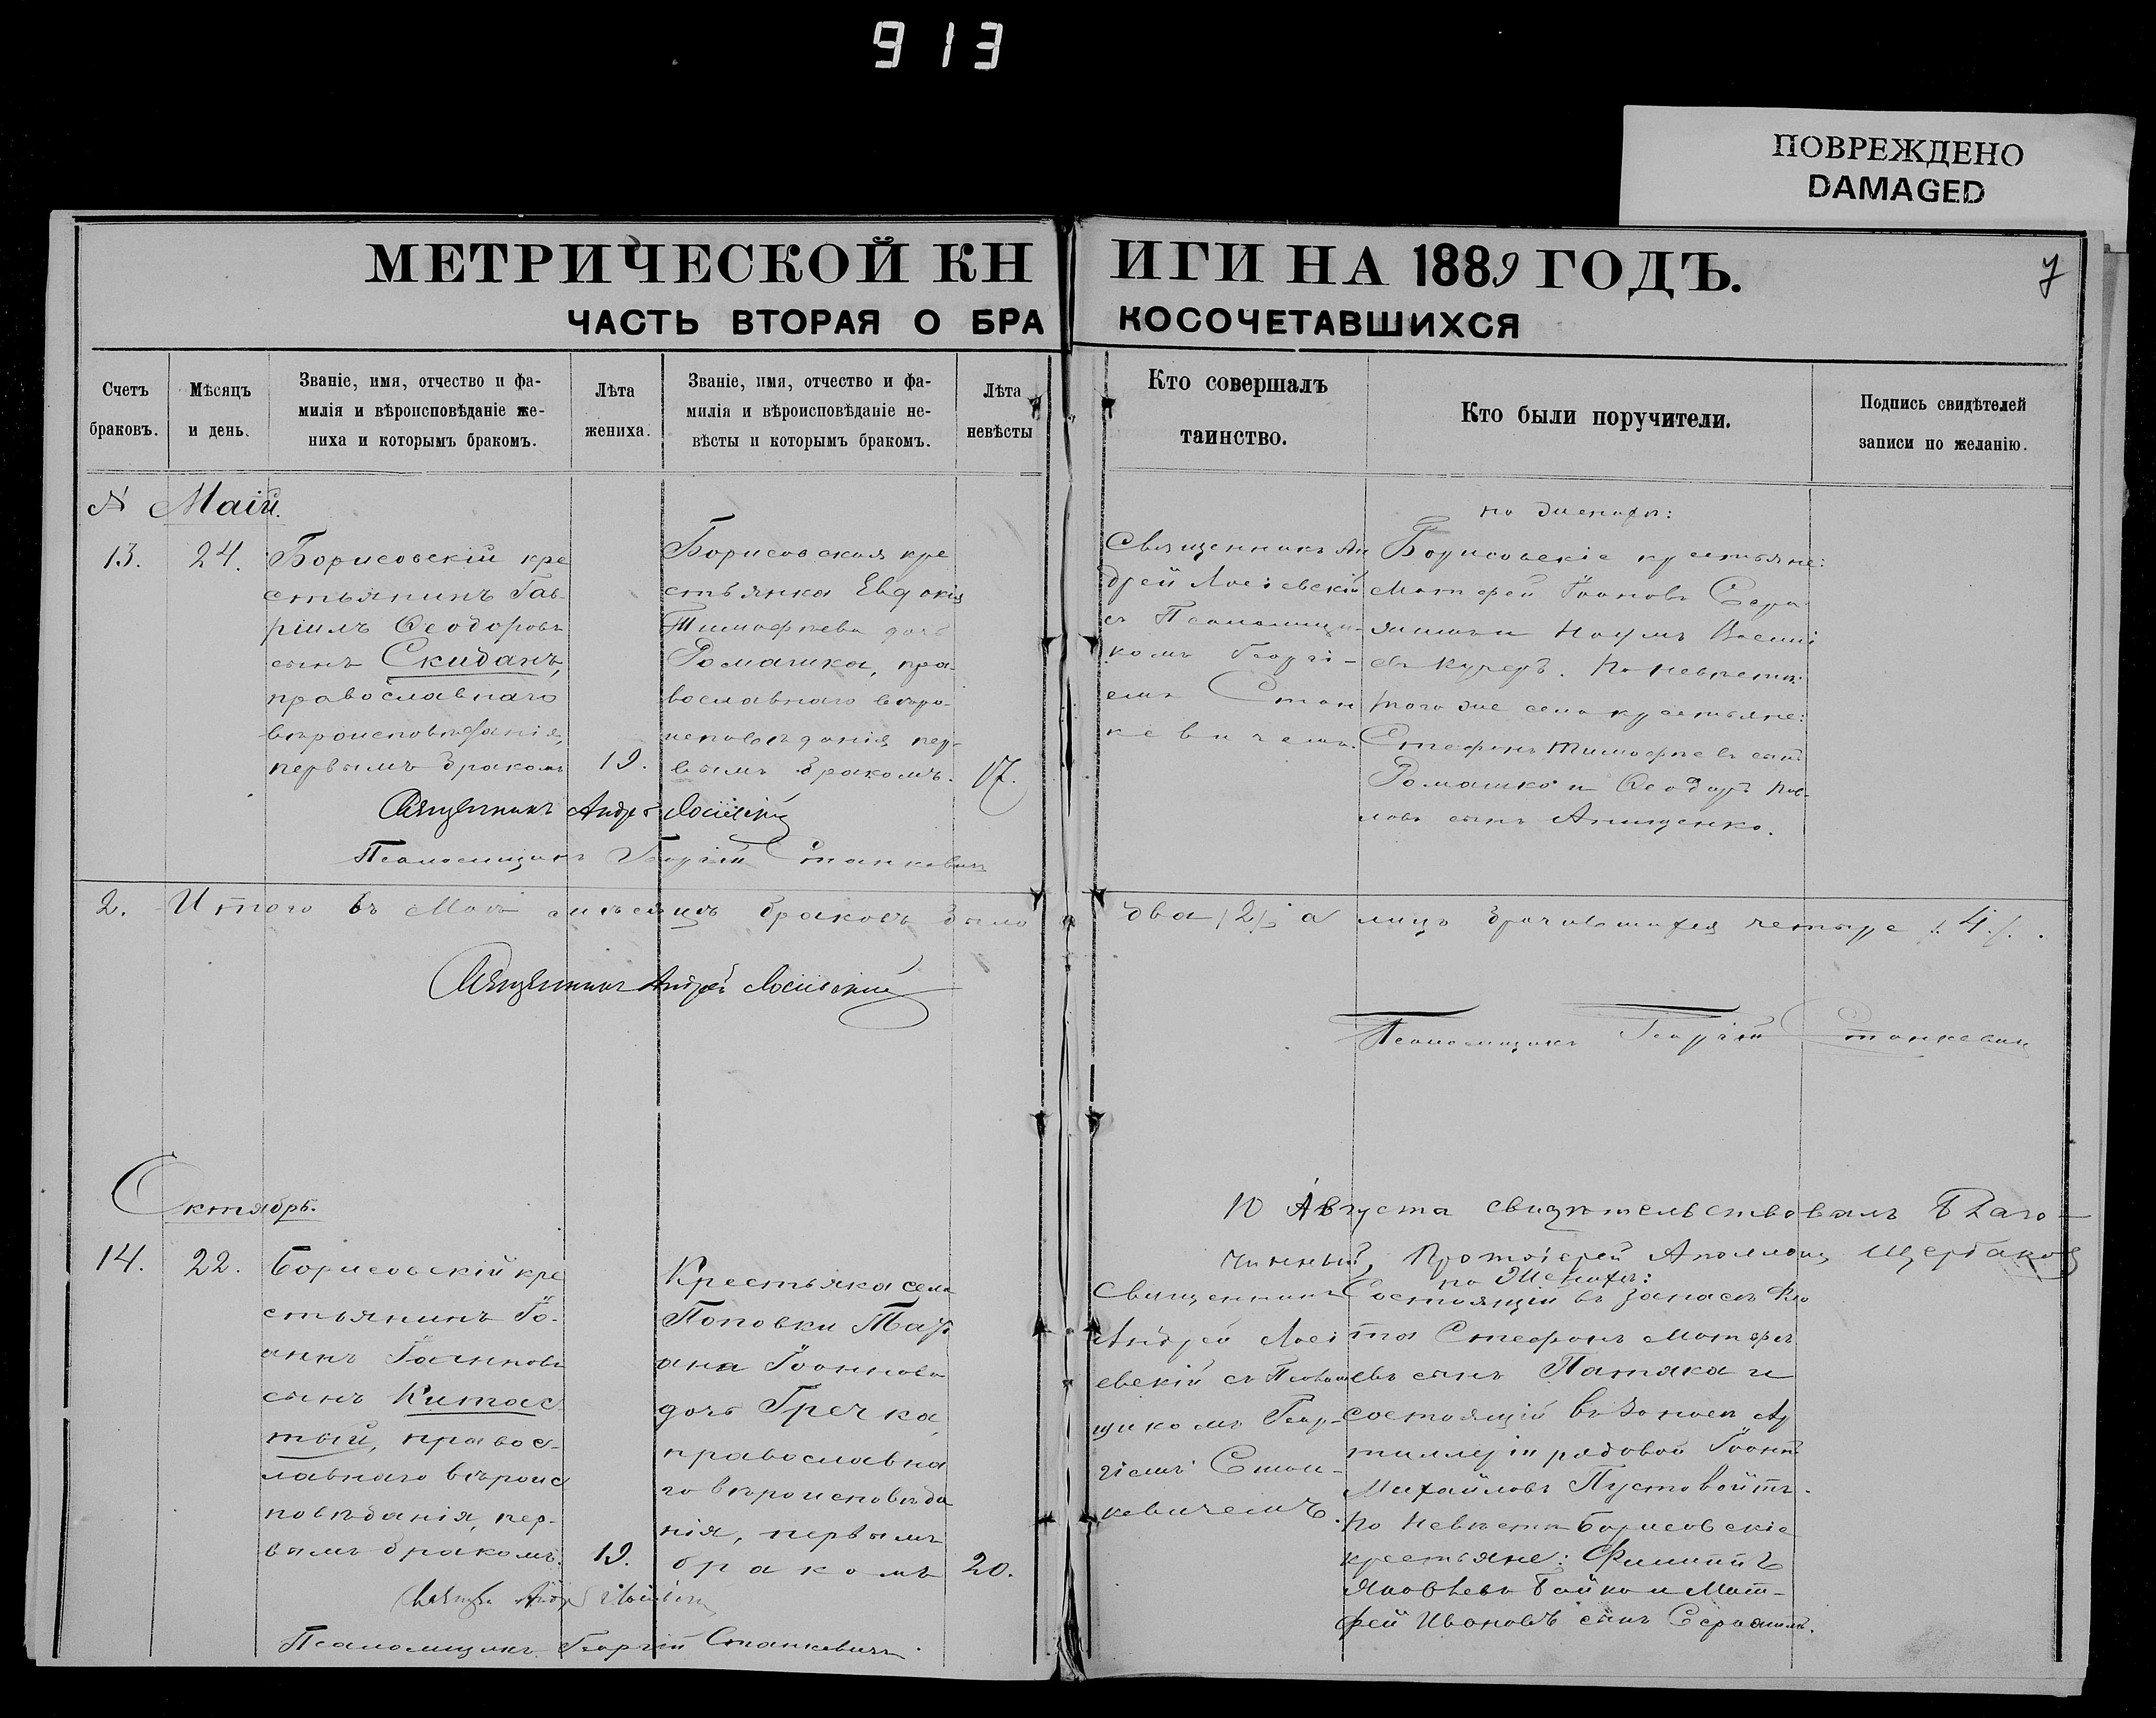 913
ПОВРЕЖДЕНО
DAMAGED
МЕТРИЧЕСКОЙ КНИГИ НА 1889 ГОДЪ.
7
ЧАСТЬ ВТОРАЯ О БРАКОСОЧЕТАВШИХСЯ
Счетъ
браковъ.
Мѣсяцъ
и день.
Званіе, имя, отчество и фа-
милія и вѣроисповѣданіе же-
ниха и которымъ бракомъ.
Лѣта
жениха.
Званіе, имя, отчество и фа-
милія и вѣроисповѣданіе не-
вѣсты и которымъ бракомъ.
Лѣта
невѣсты
Кто совершалъ
таинство.
Кто были поручители.
Подпись свидѣтелей
записи по желанію.
№ Маій.
13.
24.
Борисовскій кре
стьянинъ Гав-
ріилъ Ѳеодоровъ
сынъ Скиданъ,
православнаго
вѣроисповѣданія,
первымъ бракомъ
19.
Борисовская кре
стьянка Евдокія
Тимофѣева дочь
Ромашка, пра-
вославнаго вѣро-
исповѣданія пер-
вымъ бракомъ.
17.
Священникъ Ан
дрей
съ Псаломщи-
комъ Георгі-
емъ Стан
кевичемъ.
по женихѣ:
Борисовскіе крестьяне:
Матфей Іоановъ
и Наумъ
Кучеръ. По невѣстѣ:
того же села крестьяне:
Стефанъ Тимофѣевъ сынъ
Ромашко и Ѳеодоръ Пав-
ловъ сынъ Анищенко.
Священникъ Андрей
Псаломщикъ Георгій Станкевичъ
2.
Итого въ Маѣ мѣсяцѣ браковъ было два /2/ а лицъ брачившихся четыре /4/.
Священникъ Андрей
Псаломщикъ Георгій Станкевичъ
Октябрь.
10 Августа свидѣтельствовалъ Благо-
чинный, Протоіерей Аполлонъ Щербаковъ
14.
22.
Борисовскій кре
стьянинъ Іо-
аннъ Іоанновъ
сынъ Китас
тый, правос-
лавнаго вѣроис
повѣданія, пер-
вымъ бракомъ.
19.
Крестьяка села
Поповки Тать
ана Іоаннова
дочь Гречка,
православна
го вѣроисповѣда
нія, первымъ
бракомъ
20.
Священникъ
Андрей
съ Псалом
щикомъ Геор-
гіемъ Стан-
кевичемъ.
по Женихѣ:
Состоящій въ запасѣ Фло
та Стефанъ Матфе
евъ сынъ Патяка и
состоящій въ запасѣ Ар
тиллеріи рядовой Іоаннъ
Михайловъ Пустовойтъ.
По Невѣстѣ Борисовскіе
крестьяне: Филиппъ
Яковлевъ Бойко и Мат-
фей Ивановъ сынъ
Андрей
Псаломщикъ Георгій Станкевичъ.